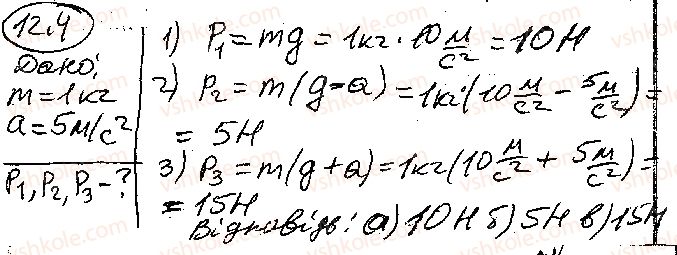 12.4
Дано:
m = 1кг
a = 5м/с²
P₁, P₂, P₃ - ?
1) P₁ = mg = 1кг · 10 м/с² = 10Н
2) P₂ = m(g - a) = 1кг · (10 м/с² - 5 м/с²) =
= 5Н
3) P₃ = m(g + a) = 1кг (10 м/с² + 5 м/с²) =
= 15Н
Відповідь: а) 10Н б) 5Н в) 15Н